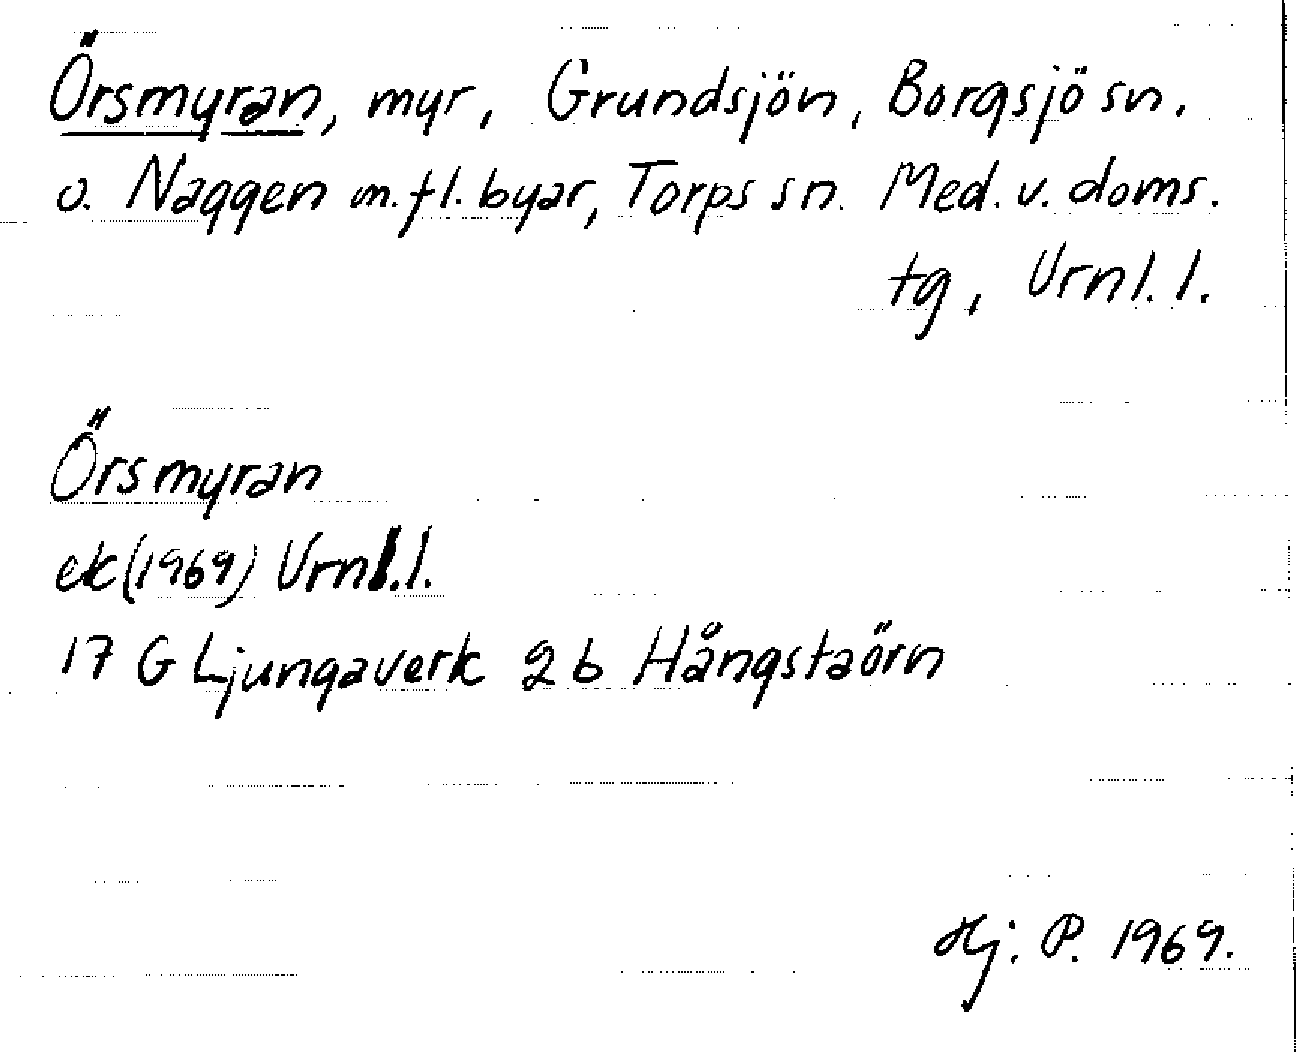 Örsmyran, myr, Grundsjön, Borgsjö sn.
o. Naggen m.fl. byar, Torps sn. Med. v. doms.
tg, Vrnl. l.
Örsmyran
ek (1969) Vrnl. l.
17 G Ljungaverk 2 b Hångstaörn
Hj. P. 1969.